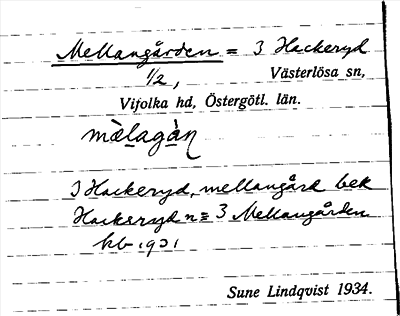 Mellangården = 3 Hackeryd
1/2, Västerlösa sn,
Vifolka hd, Östergötl. län.
mèlagàn
3 Hackeryd, mellangård bek
Hackeryd n = 3 Mellangården
kb 1931
Sune Lindqvist 1934.